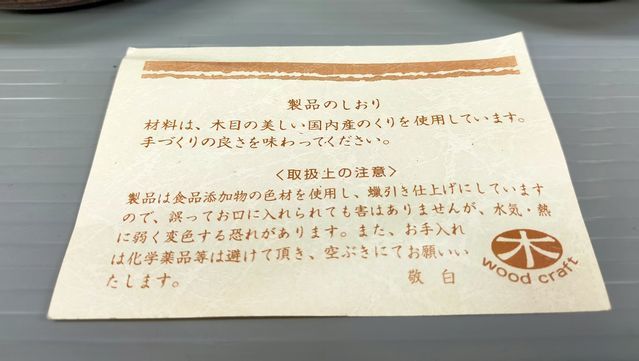 製品のしおり
材料は、木目の美しい国内産のくりを使用しています。
手づくりの良さを味わってください。
〈取扱上の注意〉
製品は食品添加物の色材を使用し、蠟引き仕上げにしています
ので、誤ってお口に入れられても害はありませんが、水気・熱
に弱く変色する恐れがあります。また、お手入れ
は化学薬品等は避けて頂き、空ぶきにてお願いい
たします。
敬白
木
wood craft